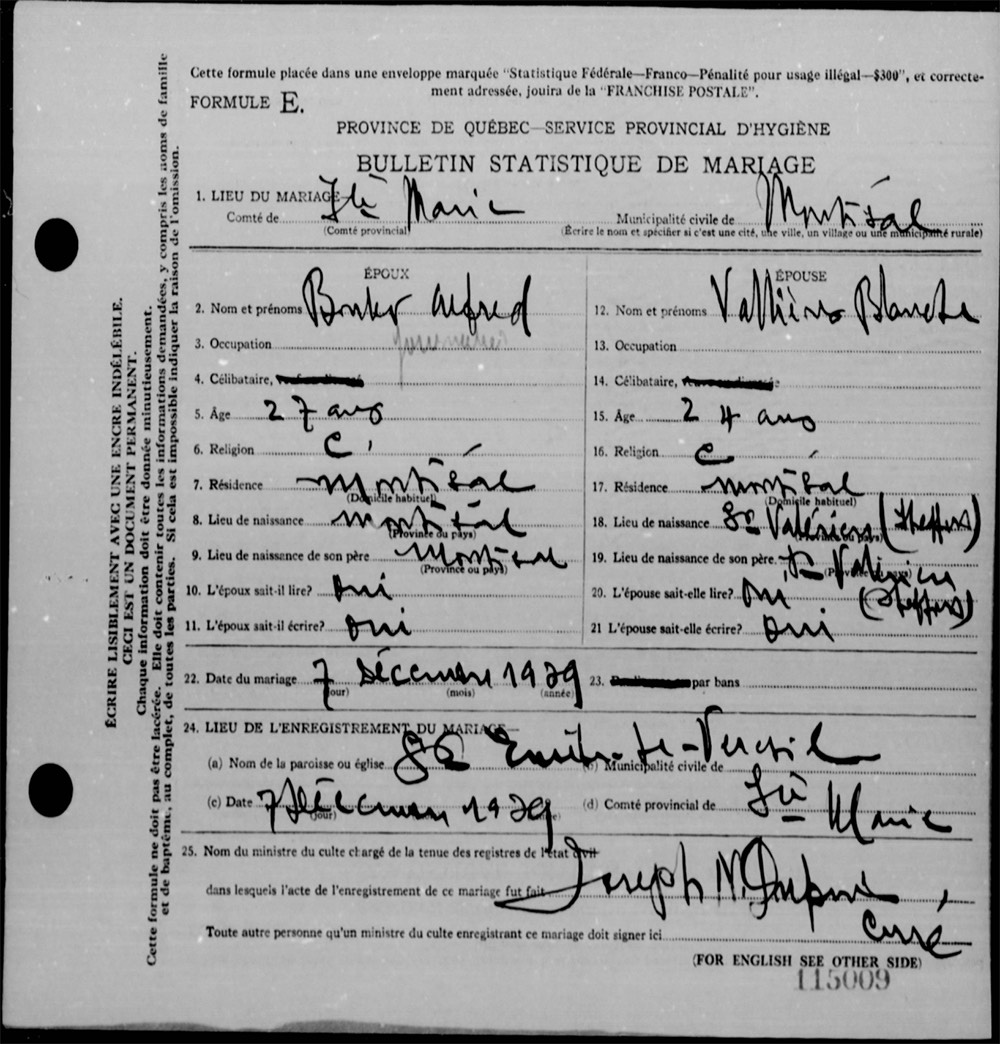 Cette formule placée dans une enveloppe marquée "Statistique Fédérale—Franco—Pénalité pour usage illégal—$300", et correcte-
ment adressée, jouira de la "FRANCHISE POSTALE".
FORMULE E.
PROVINCE DE QUÉBEC—SERVICE PROVINCIAL D'HYGIÈNE
BULLETIN STATISTIQUE DE MARIAGE
1. LIEU DU MARIAGE—
Comté de Ste Marie Municipalité civile de Montréal
(Comté provincial) (Écrire le nom et spécifier si c'est une cité, une ville, un village ou une municipalité rurale)
ÉPOUX
2. Nom et prénoms Alfred
3. Occupation
4. Célibataire,
5. Âge 27 ans
6. Religion C
7. Résidence Montréal
(Domicile habituel)
8. Lieu de naissance Montréal
(Province ou pays)
9. Lieu de naissance de son père Montréal
(Province ou pays)
10. L'époux sait-il lire? oui
11. L'époux sait-il écrire? oui
ÉPOUSE
12. Nom et prénoms Vallières Blanche
13. Occupation
14. Célibataire,
15. Age 24 ans
16. Religion C
17. Résidence Montréal
(Domicile habituel)
18. Lieu de naissance St Valérien (Shefford)
(Province ou pays)
19. Lieu de naissance de son père St Valérien
(Province ou pays)
(Shefford)
20. L'épouse sait-elle lire? oui
21 L'épouse sait-elle écrire? oui
22. Date du mariage 7 Décembre 1939 23. par bans
(jour) (mois) (année)
24. LIEU DE L'ENREGISTREMENT DU MARIAGE—
(a) Nom de la paroisse ou église (b) Municipalité civile de
(c) Date 7 Décembre 1939 (d) Comté provincial de Ste Marie
(jour)
25. Nom du ministre du culte chargé de la tenue des registres de l'état civil
dans lesquels l'acte de l'enregistrement de ce mariage fut fait Joseph N. Dupuis,
curé
Toute autre personne qu'un ministre du culte enregistrant ce mariage doit signer ici
(FOR ENGLISH SEE OTHER SIDE)
115009
ÉCRIRE LISIBLEMENT AVEC UNE ENCRE INDÉLÉBILE.
CECI EST UN DOCUMENT PERMANENT.
Chaque information doit être donnée minutieusement.
Cette formule ne doit pas être lacérée. Elle doit contenir toutes les informations demandées, y compris les noms de famille
et de baptême, au complet, de toutes les parties. Si cela est impossible indiquer la raison de l'omission.